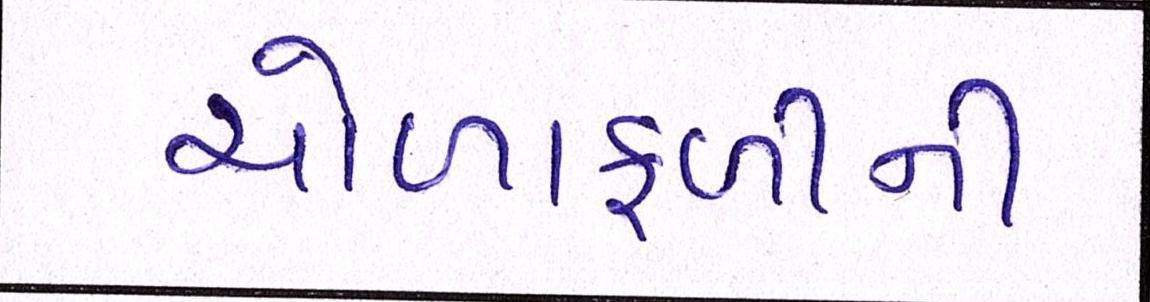 ચોળાફળીની